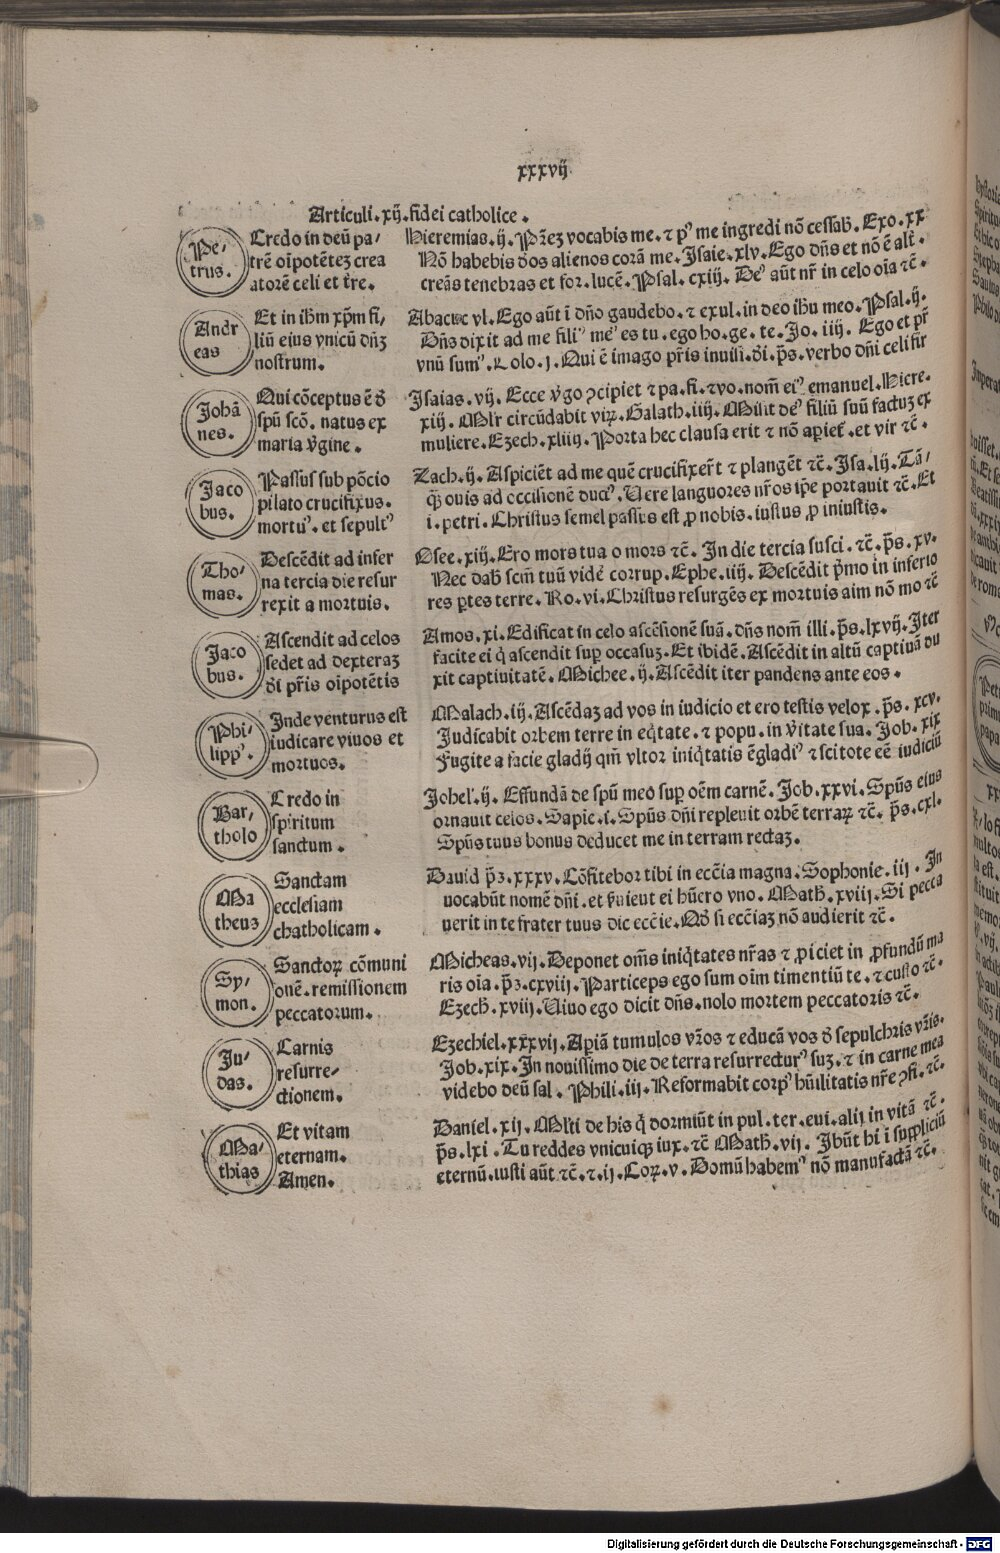 xxxvij
Articuli.xij.fidei catholice.
Pe-
trus.
Credo in deū pa-
trē oīpotētez crea
atorē celi et tr̄e.
Hieremias.ij. Pr̄ez vocabis me.⁊ pꝰ me ingredi nō cessab̄. Exo.xx
Nō habebis dōs alienos corā me. Isaie.xlv. Ego dn̄s et nō ē alt̄.
creās tenebras et for.lucē. Psal.cxiij. Deꝰ aūt nr̄ in celo oīa ⁊c̄.
Andr
eas
Et in ih̄m xp̄m fi-
liū eius vnicū dn̄z
nostrum.
Abacuc vl. Ego aūt ī dn̄o gaudebo.⁊ exul.in deo ihū meo. Psal.ij.
Dn̄s dixit ad me filiꝰ meꝰ es tu.ego ho.ge.te. Jo.iij. Ego et pr̄
vnū sumꝰ. Colo.j. Qui ē imago pr̄is inuisi.d̄i. p̄s. verbo dn̄i celi fir
Johā
nes.
Qui cōceptus ē d̄
spū scō. natus ex
maria v̄gine.
Isaias.vij. Ecce v̄go ꝯcipiet ⁊ pa.fi.⁊ vo.nom̄ eiꝰ emanuel. Hiere.
xiij. Ml̄r circūdabit viꝝ. Galath.iiij. Misit deꝰ filiū suū factuz ex
muliere. Ezech.xliiij. Porta hec clausa erit ⁊ nō aꝑiet̄.et vir ⁊c̄.
Jaco
bus.
Passus sub pōcio
pilato crucifixus.
mortuꝰ.et sepultꝰ
Zach.ij. Aspiciēt ad me quē crucifixer̄t ⁊ plangēt ⁊c̄. Isa.lij. Tā-
q̄ ouis ad occisionē ducꝰ. Uere languores nr̄os ip̄e portauit ⁊c̄. Et
i.petri. Christus semel passus est ꝓ nobis.iustus ꝓ iniustis.
Tho-
mas.
Descēdit ad infer
na tercia die resur
rexit a mortuis.
Osee.xiij. Ero mors tua o mors ⁊c̄. In die tercia susci.⁊c̄. p̄s.xv.
Nec dab̄ scm̄ tuū vidē corrup. Ephe.iiij. Descēdit p̄mo in inferio
res ꝑtes terre. Ro.vi. Christus resurgēs ex mortuis aim nō mo ⁊c̄
Jaco
bus.
Ascendit ad celos
sedet ad dexteraz
d̄i pr̄is oīpotētis
Amos.xi. Edificat in celo ascēsionē suā. dn̄s nom̄ illi. p̄s.lxvij. Iter
facite ei q̄ ascendit suꝑ occasuz. Et ibidē. Ascēdit in altū captiuā du
xit captiuitatē. Michee.ij. Ascēdit iter pandens ante eos.
Phi-
lippꝰ.
Inde venturus est
iudicare viuos et
mortuos.
Malach.iij. Ascēdaz ad vos in iudicio et ero testis velox. p̄s.xcv.
Judicabit orbem terre in eq̄tate.⁊ popu.in v̄itate sua. Job.xix
Fugite a facie gladij qm̄ vltor iniq̄tatis ē gladiꝰ ⁊ scitote eē iudiciū
Bar-
tholo
Credo in
spiritum
sanctum.
Johel'.ij. Effundā de spū meo suꝑ oēm carnē. Job.xxvi. Spūs eius
ornauit celos. Sapie.i. Spūs dn̄i repleuit orbē terraꝝ ⁊c̄. p̄s.cxl.
Spūs tuus bonus deducet me in terram rectaz.
Ma
theus
Sanctam
ecclesiam
chatholicam.
Dauid p̄z.xxxv. Cōfitebor tibi in eccīa magna. Sophonie.iij. In
uocabūt nomē dn̄i.et ꝼuient ei hūero vno. Math̄.xviij. Si pecca
uerit in te frater tuus dic eccīe. Qd̄ si eccīaz nō audierit ⁊c̄.
Sy-
mon.
Sanctoꝝ cōmuni
onē.remissionem
peccatorum.
Micheas.vij. Deponet om̄s iniq̄tates nr̄as ⁊ ꝓiciet in ꝓfundū ma
ris oīa. p̄z.cxviij. Particeps ego sum oīm timentiū te.⁊ custo ⁊c̄.
Ezech̄.xviij. Uiuo ego dicit dn̄s.nolo mortem peccatoris ⁊c̄.
Ju-
das.
Carnis
resurre-
ctionem.
Ezechiel.xxxvij. Apiā tumulos vr̄os ⁊ educā vos d̄ sepulchris vr̄is.
Job.xix. In nouissimo die de terra resurrecturꝰ suz.⁊ in carne mea
videbo deū sal. Phili.iij. Reformabit corpꝰ hūilitatis nr̄e ꝯfi.⁊c̄.
Ma-
thias
Et vitam
eternam.
Amen.
Daniel.xij. Ml̄ti de his q̄ dormiūt in pul.ter.eui.alij in vitā ⁊c̄.
p̄s.lxi. Tu reddes vnicuiqꝫ iux.⁊c̄ Math̄.vij. Ibūt hi i suppliciū
eternū.iusti aūt ⁊c̄.⁊.ij.Coꝝ.v. Domū habemꝰ nō manufactā ⁊c̄.
Digitalisierung gefördert durch die Deutsche Forschungsgemeinschaft - DFG